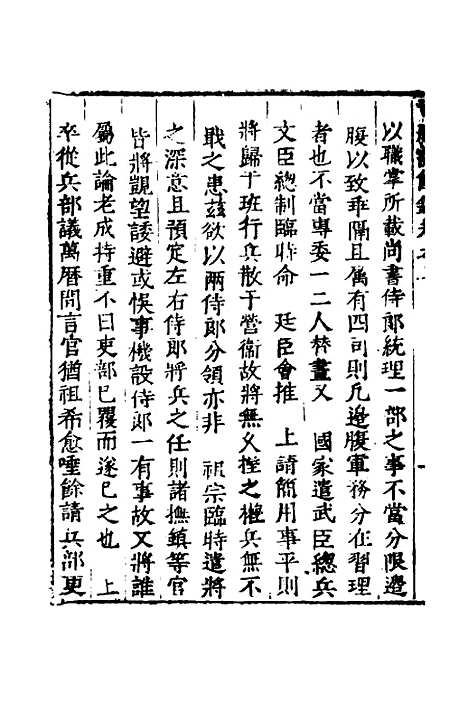 以職掌所載尚書侍郎統理一部之事不當分限邊
腹以致乖隔且属有四司則凢邊腹軍務分在習理
者也不當專委一二人替畫又　國家遣武臣總兵
文臣總制臨時命　廷臣會推　上請簡用事平則
將歸于班行兵散于營衞故將無久握之權兵無不
戢之患茲欲以两侍郎分領亦非　祖宗臨時遣將
之深意且預定左右侍郎將兵之任則諸撫鎮等官
皆將觀望諉避或悮事機設侍郎一有事故又將誰
屬此論老成持重不曰吏部巳覆而遂巳之也　上
卒從兵部議萬曆間言官猶祖希愈唾餘請兵部更